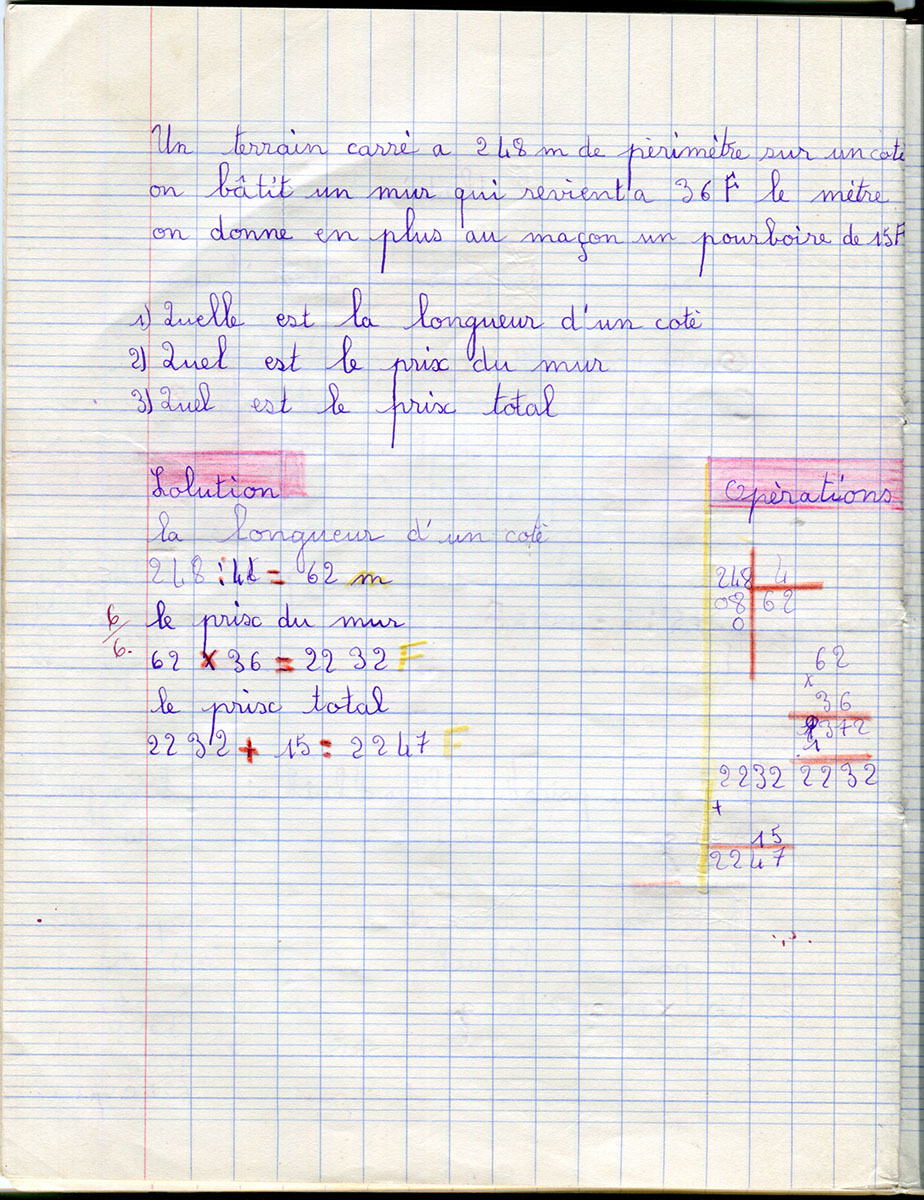 Un terrain carré a 248 m de périmètre sur un coté
on bâtit un mur qui revient a 36 F le mètre
on donne en plus au maçon un pourboire de 15F
1) Quelle est la longueur d'un coté
2) Quel est le prix du mur
3) Quel est le prix total
Solution
la longueur d'un coté
248 : 4 = 62 m
6/6.
le prix du mur
62 x 36 = 2232 F
le prix total
2232 + 15 = 2247 F
Opèrations
248 4
08 62
0
62
x
36
372
2232
2232
+
15
2247